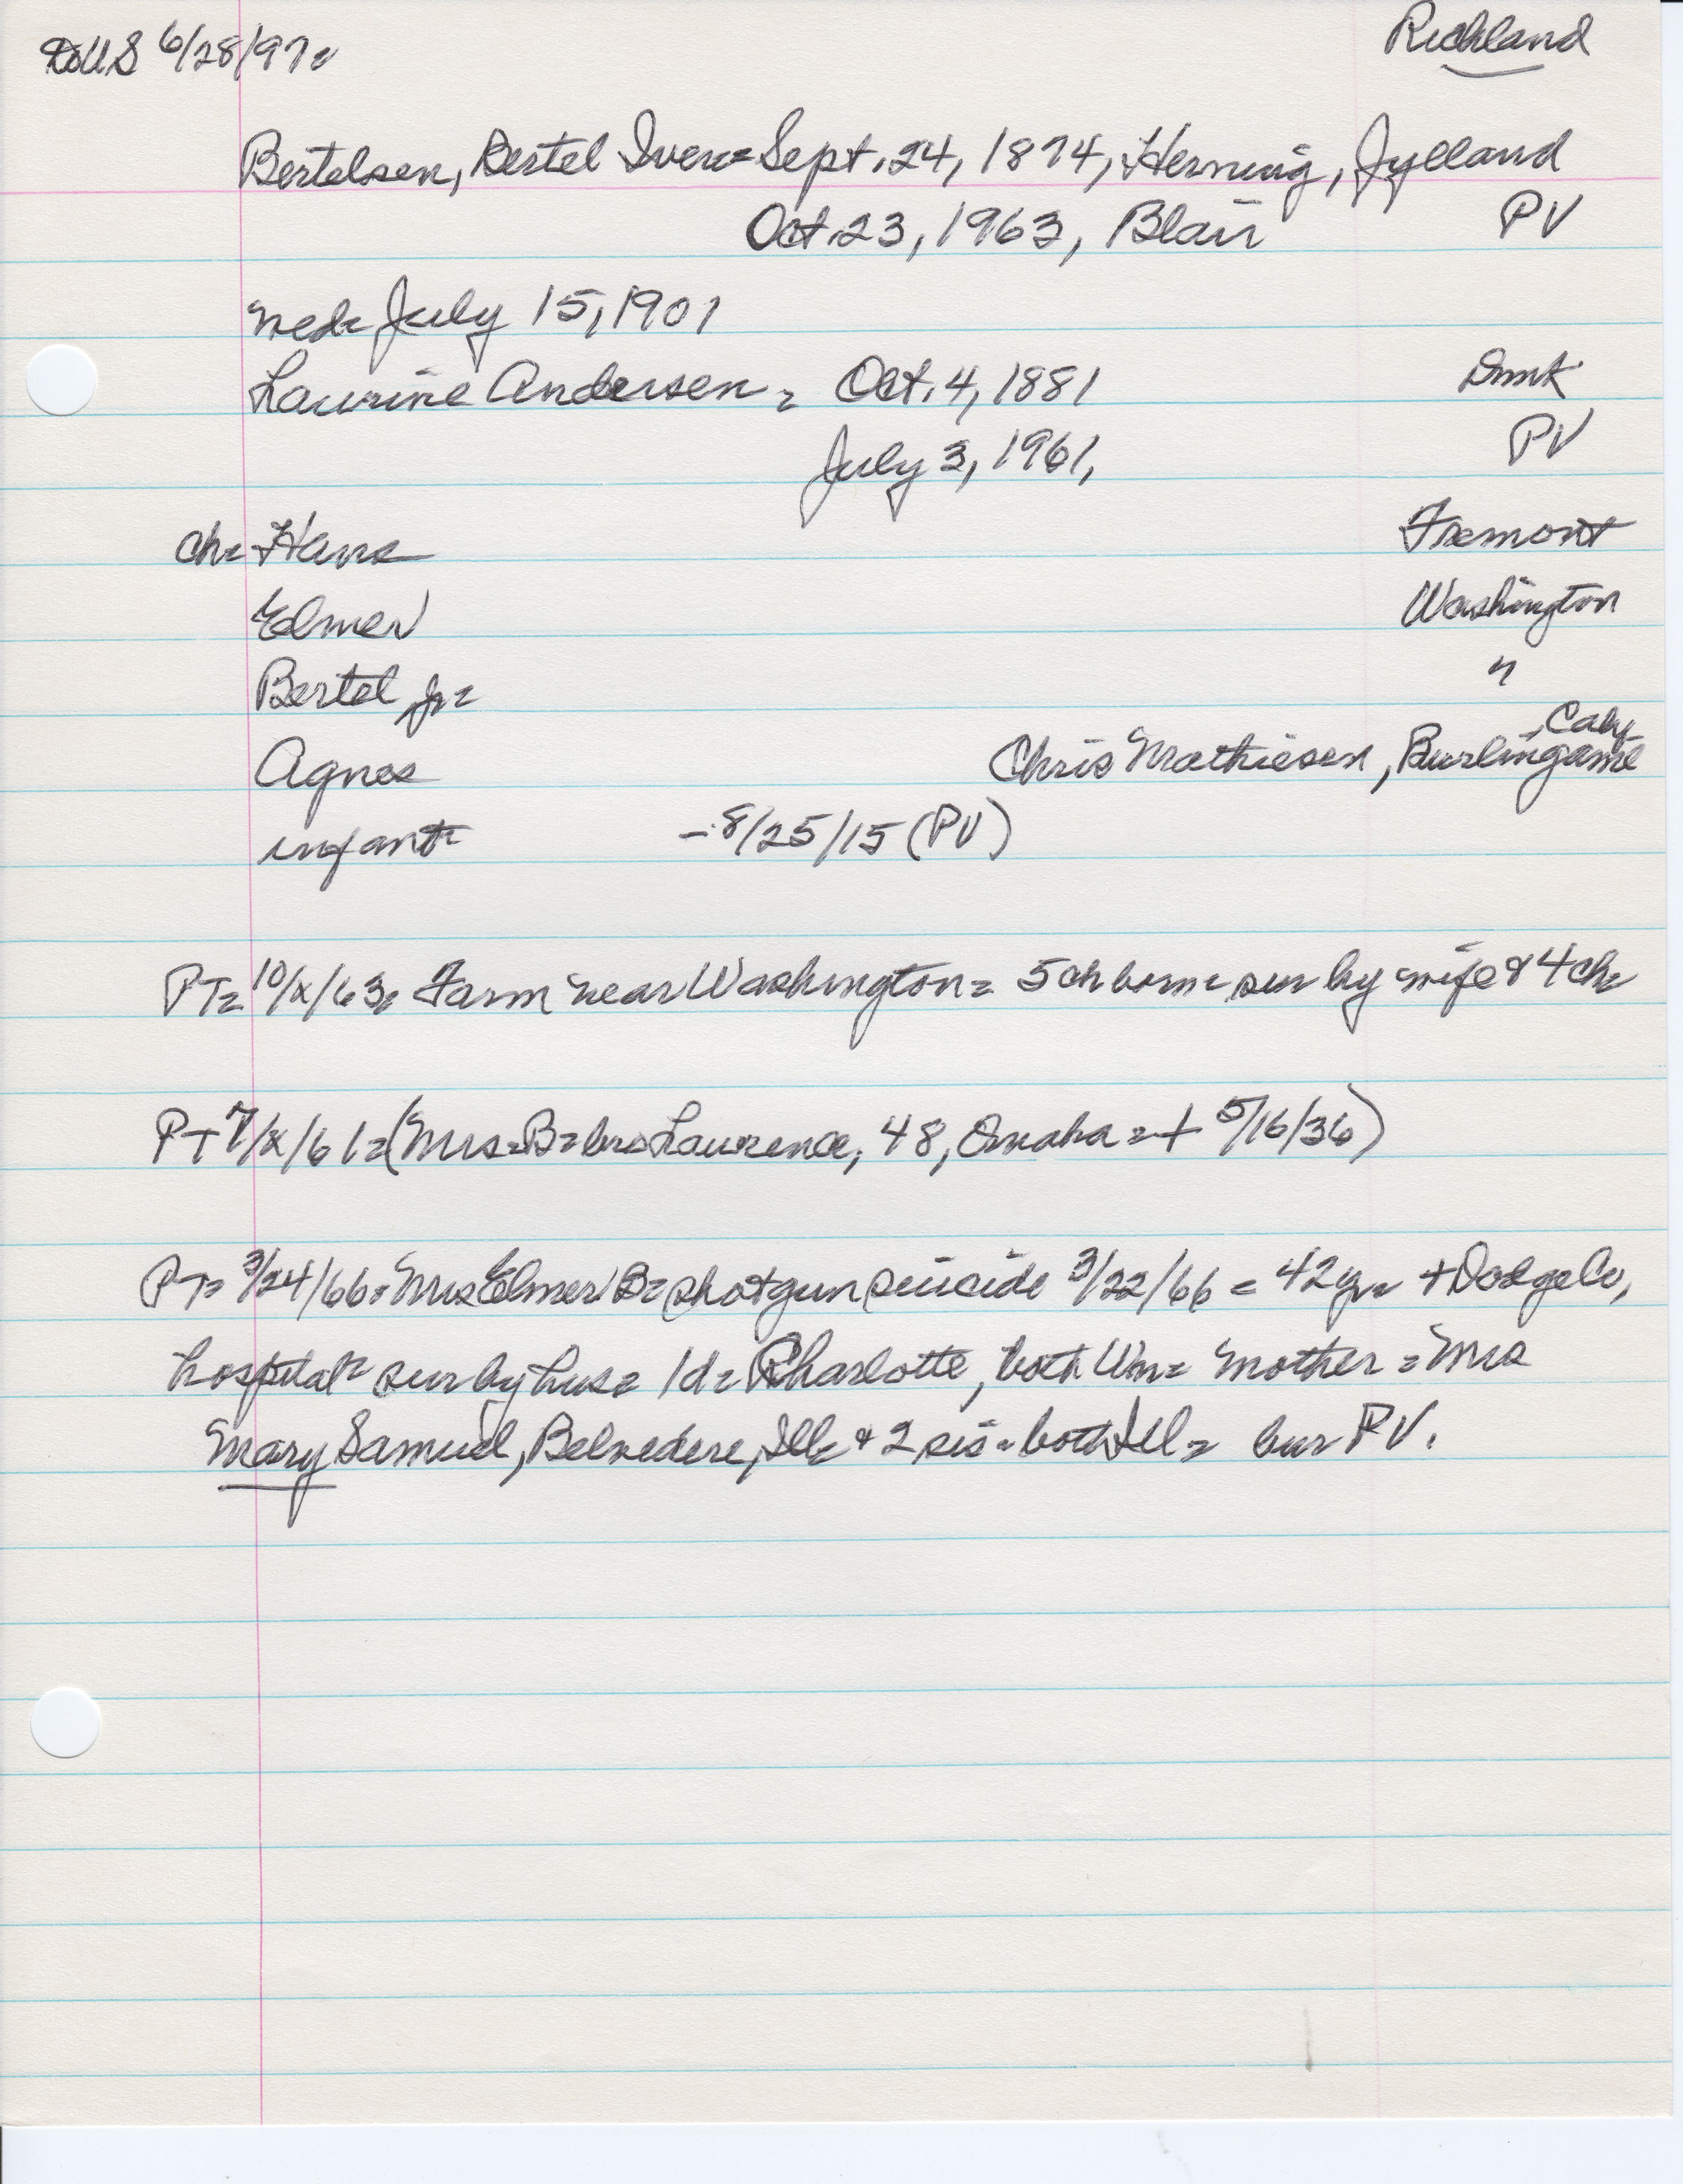 DoUS 6/28/97= Richland
Bertelsen, Bertel Iver= Sept. 24, 1874, Herning, Jylland
Oct. 23, 1963, Blair PV
med= July 15, 1901
Laurine Andersen = Oct. 4, 1881 Dmk
July 3, 1961, PV
ch= Hans Fremont
Elmer Washington
Bertel Jr= "
Agnes Chris Mathiesen, Burlingame, Calif
infant= - 8/25/15 (PV)
PT= 10/x/63= Farm near Washington= 5 ch born= sur by wife & 4 ch=
PT 7/x/61=(Mrs=B= bro Laurence, 48, Omaha = + 5/16/36)
PT= 3/24/66= Mrs Elmer B= shotgun suicide 3/22/66 = 42 yr= + Dodge Co,
hospital= sur by hus= 1d= Charlotte, both Wn= mother = Mrs
Mary Samuel, Belvedere, Ill= & 2 sis= both Ill= bur PV.